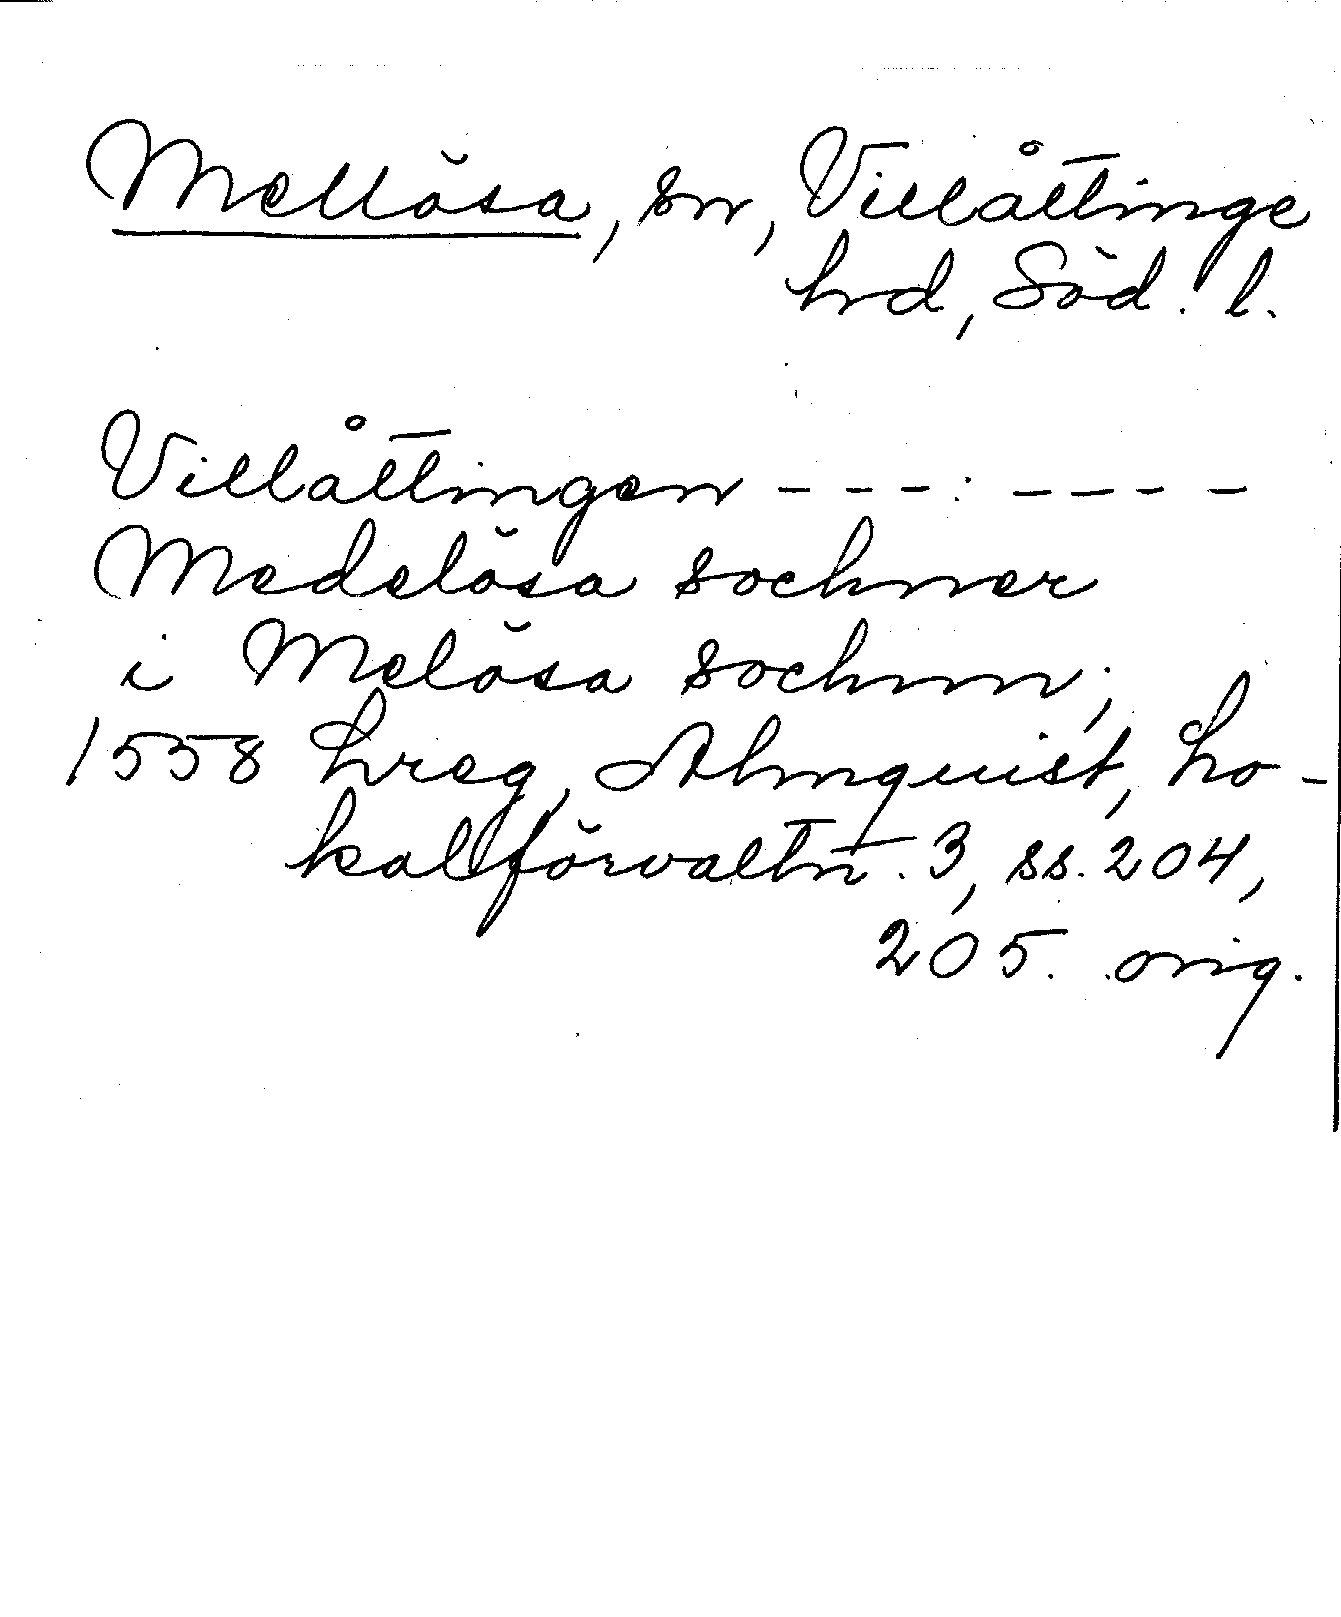 Mellösa, sn, Villåttinge
hrd, Söd. l.
Villåttingen - - - : - - - -
Medelösa sochner
i Melösa sochnn;
1558 Lreg, Almquist, Lo-
kalförvaltn. 3, ss. 204,
205. orig.